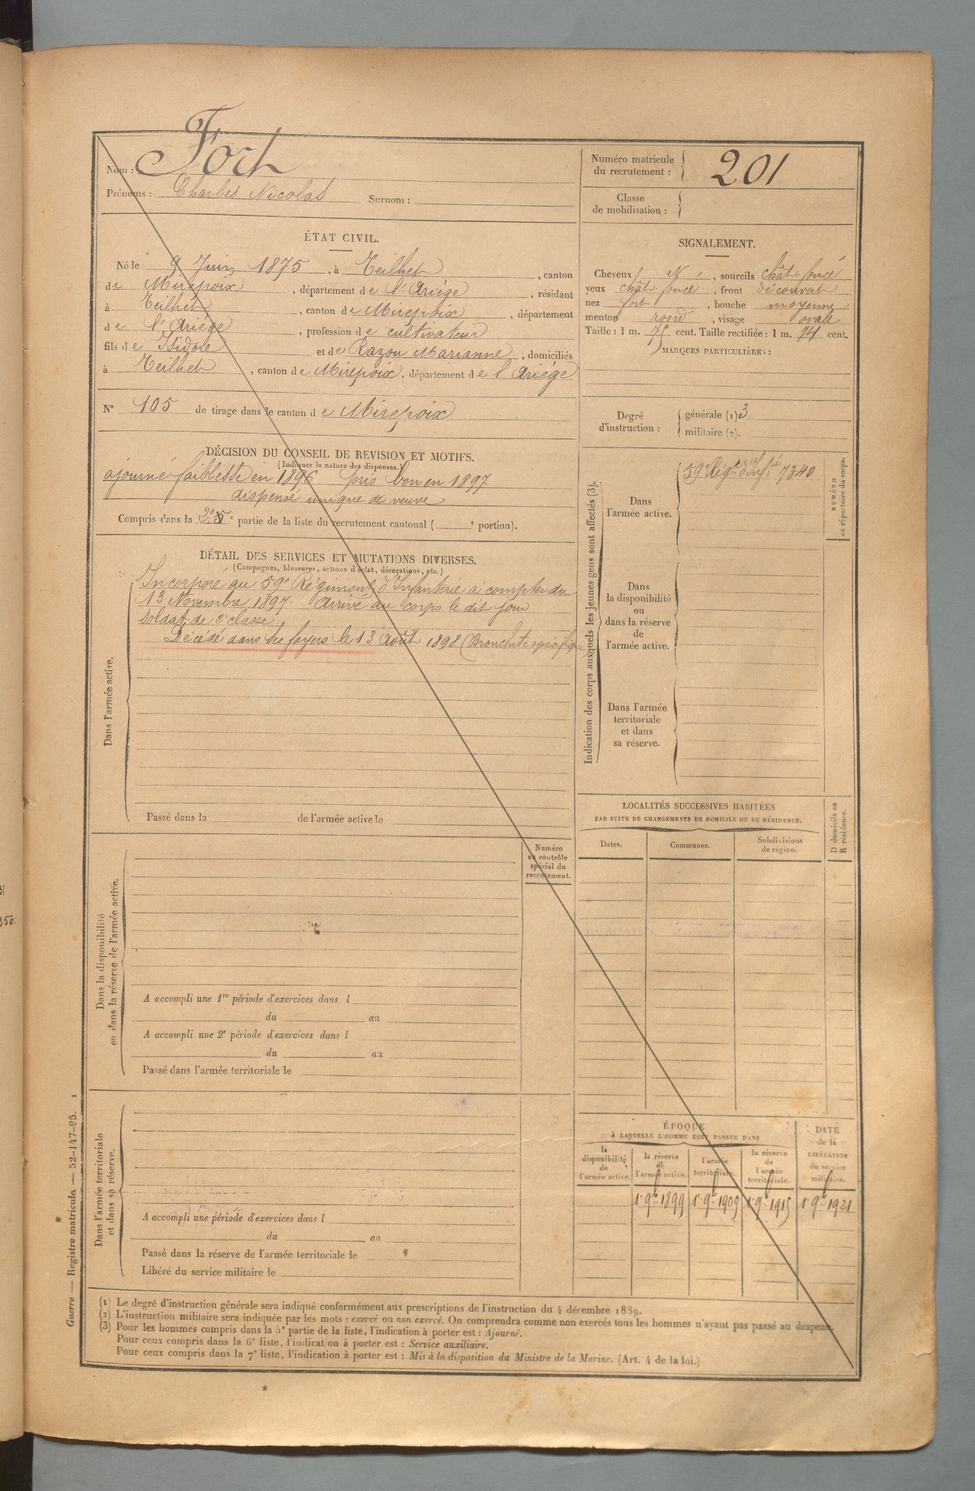 Nom : Fort
Prénoms : Charles Nicolas Surnom :
Numéro matricule
du recrutement : 201
Classe
de mobilisation :
ÉTAT CIVIL.
Né le 9 Juin 1875, à Teilhet, canton
de Mirepoix, département de l'Ariège, résidant
à Teilhet, canton de Mirepoix, département
de l'Ariège, profession de cultivateur
fils de Isidore et de Razou Marianne, domiciliés
à Teilhet, canton de Mirepoix, département de l'Ariège
N° 105 de tirage dans le canton de Mirepoix
SIGNALEMENT.
Cheveux N, sourcils chât foncé
yeux chât foncé, front découvert
nez fort, bouche moyenne
menton rond, visage ovale
Taille : 1 m. 75 cent. Taille rectifiée : 1 m. 74 cent.
MARQUES PARTICULIÈRES :
Degré
d'instruction :
générale (1) 3
militaire (2).
DÉCISION DU CONSEIL DE REVISION ET MOTIFS.
(Indiquer la nature des dispenses.)
ajourné faiblesse en 1896 pris bon en 1897
dispensé unique de veuve
Compris dans la 2e partie de la liste du recrutement cantonal ( e portion).
DÉTAIL DES SERVICES ET MUTATIONS DIVERSES.
(Campagnes, blessures, actions d'éclat, décorations, etc.)
Incorporé au 59e Régiment d'Infanterie à compter du
13 Novembre 1897. Arrivé au corps le dit jour
soldat de 2e classe.
Décédé dans ses foyers le 13 août 1898 (Bronchite
Dans l'armée active.
Passé dans la de l'armée active le
Indication des corps auxquels les jeunes gens sont affectés (3).
Dans
l'armée active.
59e Régt d'Infie 7340
NUMÉRO
au répertoire du corps.
Dans
la disponibilité
ou
dans la réserve
de
l'armée active.
Dans l'armée
territoriale
et dans
sa réserve.
LOCALITÉS SUCCESSIVES HABITÉES
PAR SUITE DE CHANGEMENTS DE DOMICILE OU DE RÉSIDENCE.
Dates. Communes. Subdivisions
de région.
D domicile ou
R résidence.
Dans la disponibilité
ou dans la réserve de l'armée active.
Numéro
au contrôle
spécial du
recrutement.
A accompli une 1re période d'exercices dans l
du au
A accompli une 2e période d'exercices dans l
du au
Passé dans l'armée territoriale le
Dans l'armée territoriale
et dans sa réserve.
A accompli une période d'exercices dans l
du au
Passé dans la réserve de l'armée territoriale le
Libéré du service militaire le
ÉPOQUE
À LAQUELLE L'HOMME DOIT PASSER DANS
la
disponibilité
de
l'armée active.
la réserve
de
l'armée active.
l'armée
territoriale.
la réserve
de
l'armée
territoriale.
DATE
de la
LIBÉRATION
du service
militaire.
1er 9bre 1899 1er 9bre 1909 1er 9bre 1915 1er 9bre 1921
Guerre — Registre matricule. — 52-147-95.
(1) Le degré d'instruction générale sera indiqué conformément aux prescriptions de l'instruction du 4 décembre 1889.
(2) L'instruction militaire sera indiquée par les mots : exercé ou non exercé. On comprendra comme non exercés tous les hommes n'ayant pas passé au drapeau.
(3) Pour les hommes compris dans la 5e partie de la liste, l'indication à porter est : Ajourné.
Pour ceux compris dans la 6e liste, l'indication à porter est : Service auxiliaire.
Pour ceux compris dans la 7e liste, l'indication à porter est : Mis à la disposition du Ministre de la Marine. (Art. 4 de la loi.)